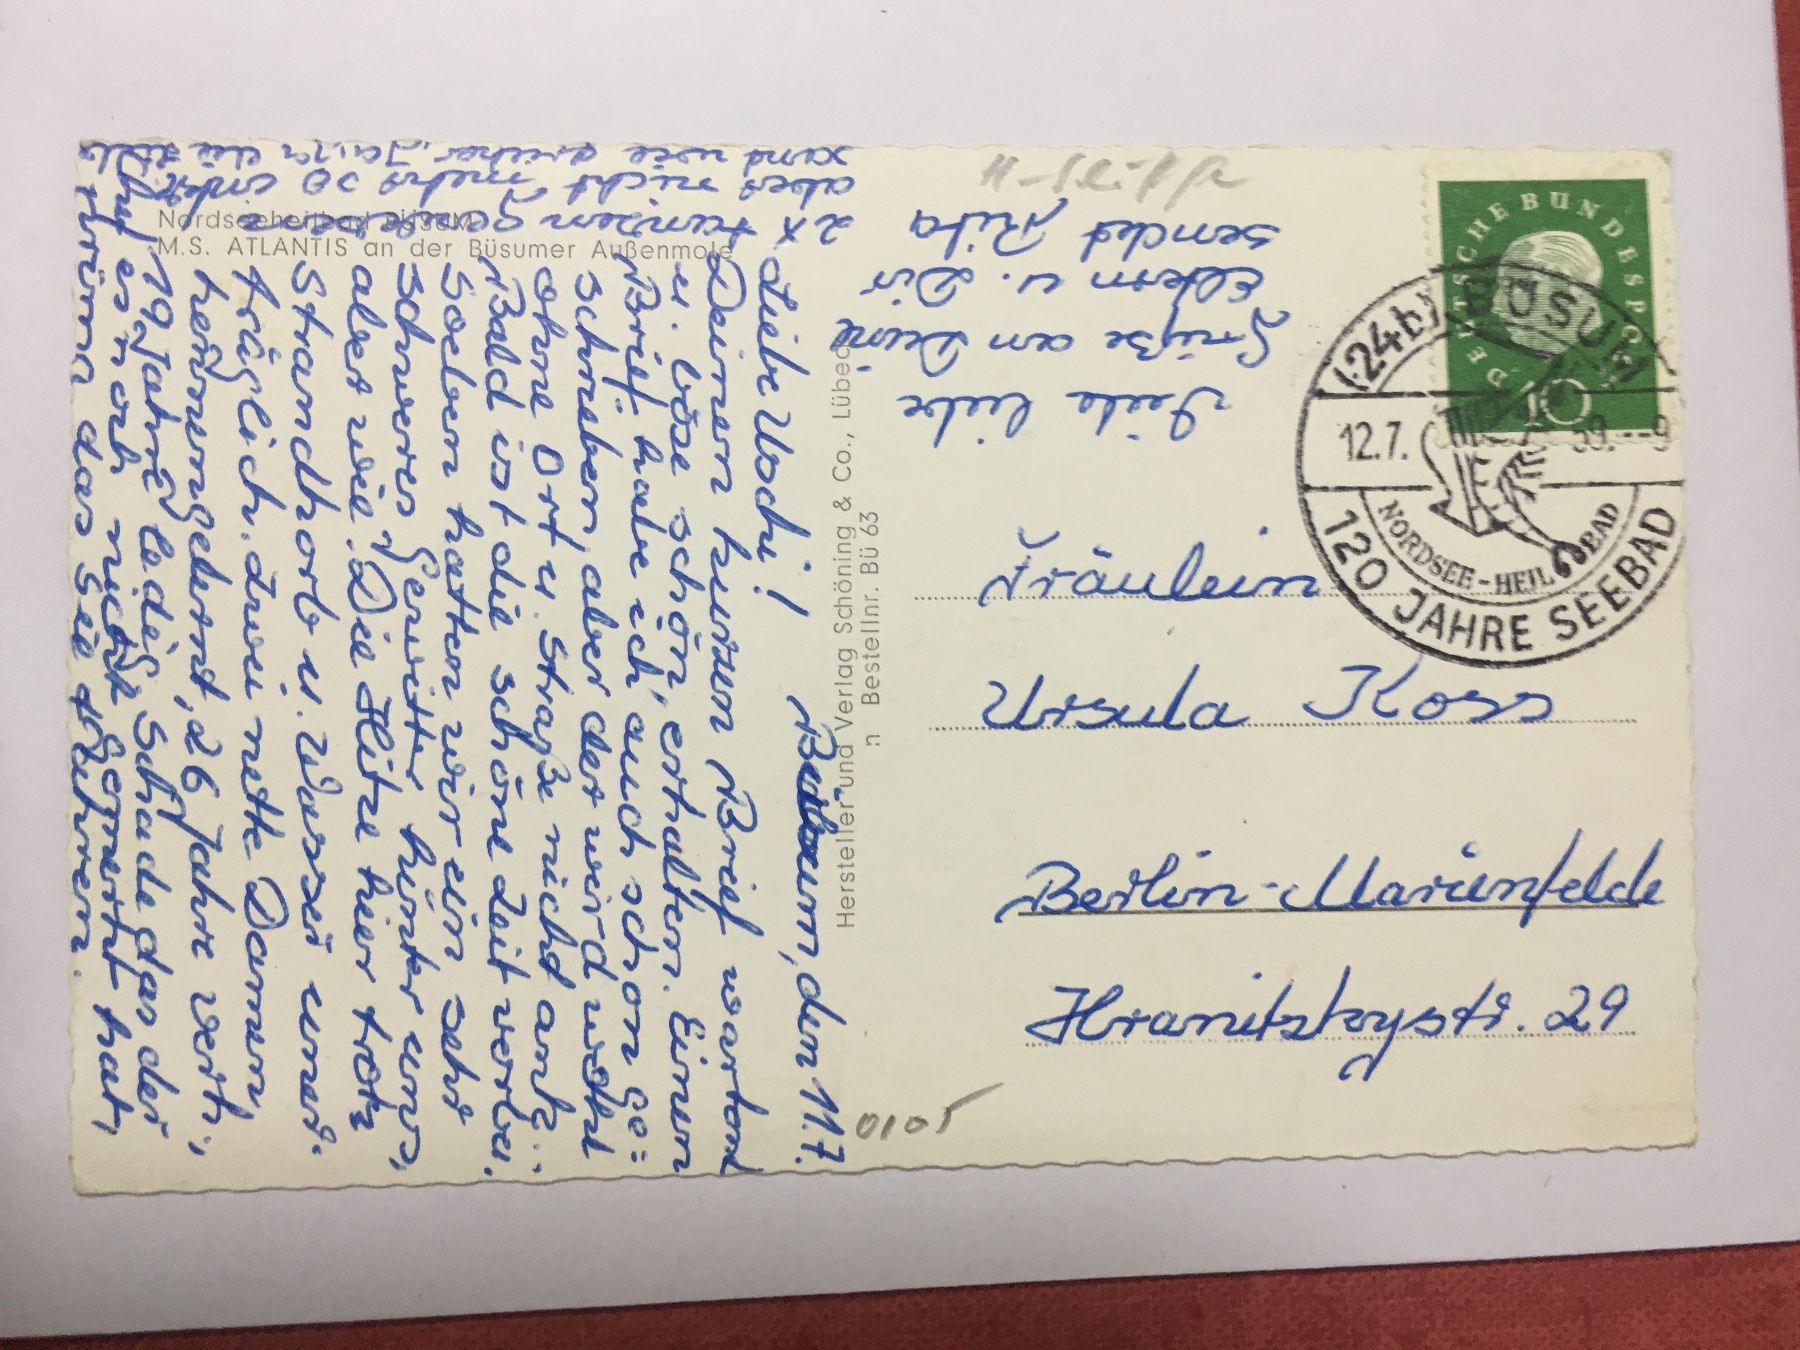 Nordseeheilbad Büsum
M.S. ATLANTIS an der Büsumer Außenmole
Hersteller und Verlag Schöning & Co., Lübeck
n Bestellnr. Bü 63
Büsum, den 11.7.
Liebe Uschi!
Deinen kurzen Brief wartend
u. böse schön, erhalten. Einen
Brief habe ich auch schon ge=
schrieben, aber der wird wohl
ohne Ort u. Straße nicht ank..
Bald ist die schöne Zeit vorbei.
Soeben hatten wir ein sehr
schweres Gewitter hinter uns,
aber wie. Die Hitze hier trotz
Strandkorb u. Wasser uner-
träglich. Zwei nette Damen
kennengelernt, 26 Jahre verh.,
19 Jahre ledig. Schade das der
es noch nicht gemerkt hat,
das sie
2x tanzen
aber nicht mehr so
und wie früher,
Viele liebe
Grüße an Deine
Eltern u. Dir
sendet Rita
Fräulein
Ursula Koss
Berlin-Marienfelde
Hranitzkystr. 29
0105
DEUTSCHE BUNDESPOST
10
(24b) BÜSUM
12.7. 59.--9
NORDSEE-HEILBAD
120 JAHRE SEEBAD